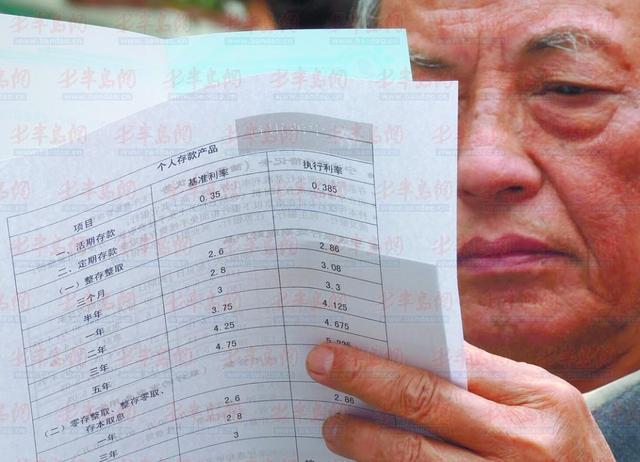 个人存款产品
项目 基准利率 执行利率
一、活期存款 0.35 0.385
二、定期存款
（一）整存整取
三个月 2.6 2.86
半年 2.8 3.08
一年 3 3.3
二年 3.75 4.125
三年 4.25 4.675
五年 4.75 5.225
（二）零存整取、整存零取、
存本取息
一年 2.6 2.86
三年 2.8
3
半岛网